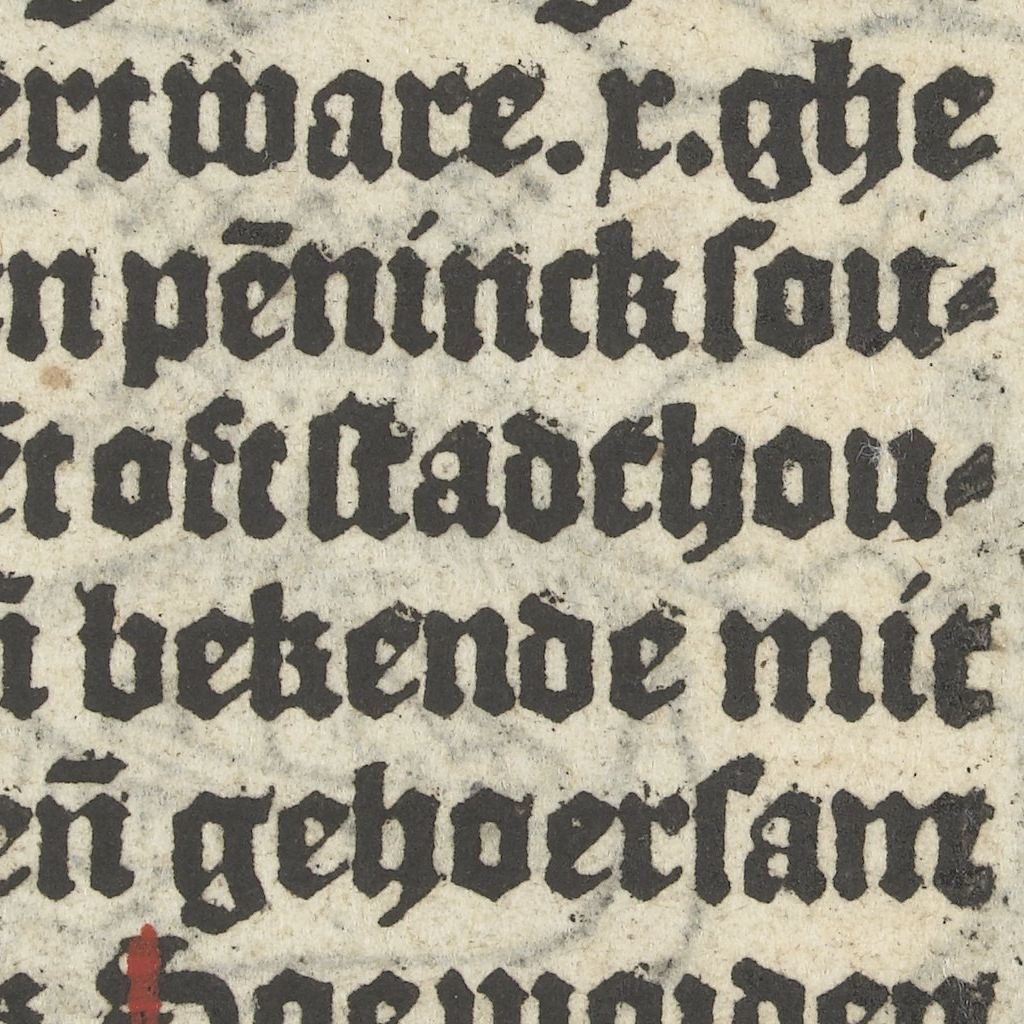 ertware. x. ghe
n pēninck ſou⸗
t oft ſtadthou⸗
bekende mit
en̄ gehoerſam